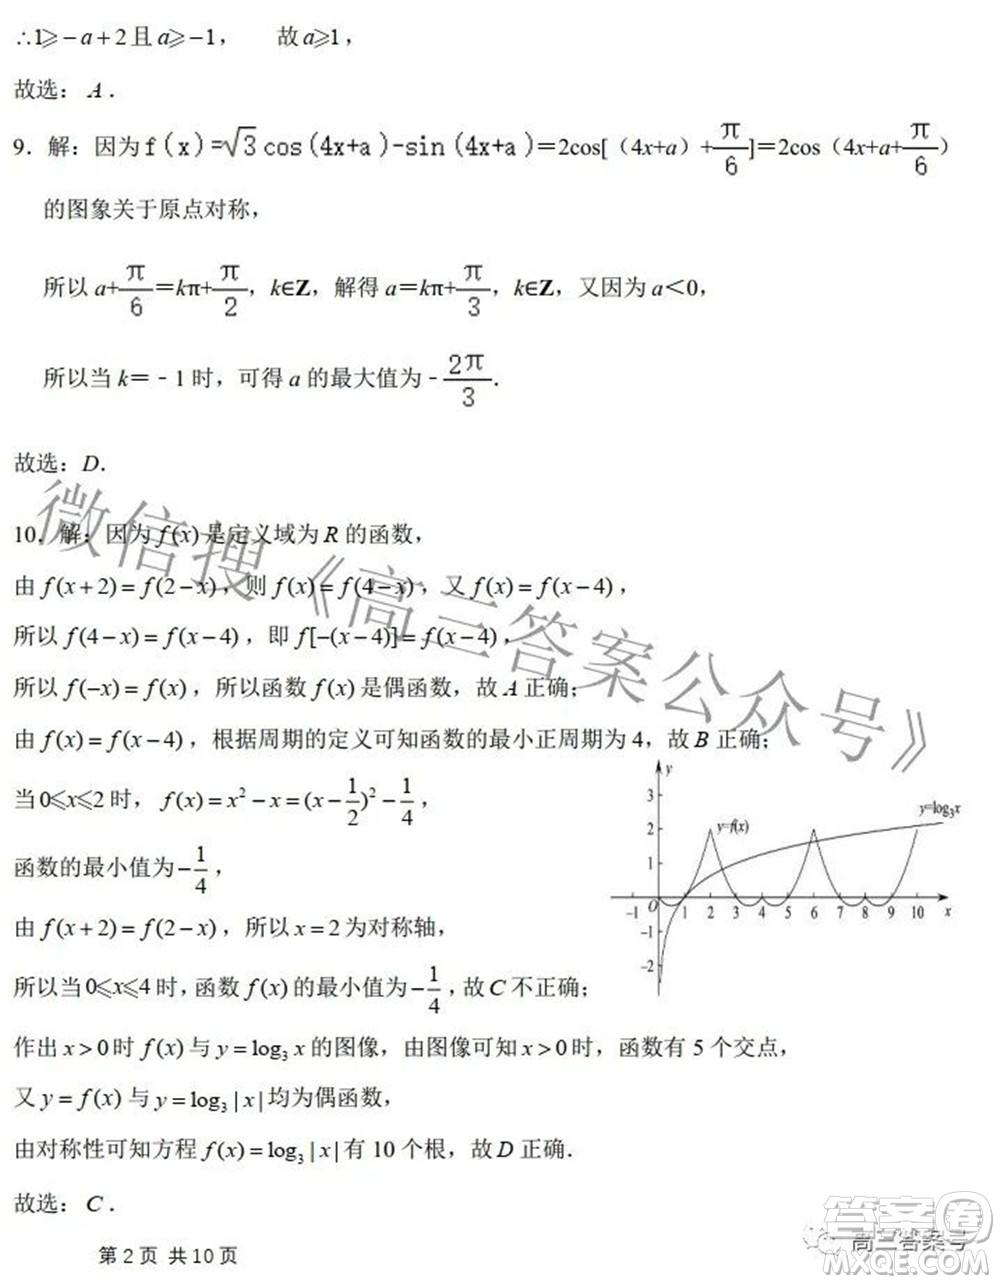 ∴1⩾−a+2且a⩾−1， 故a⩾1，
故选：A．
9．解：因为f(x)=√3cos(4x+a)-sin(4x+a)＝2cos[（4x+a）+π/6]＝2cos（4x+a+π/6）
的图象关于原点对称，
所以 a+π/6＝kπ+π/2，k∈Z，解得 a＝kπ+π/3，k∈Z，又因为 a＜0，
所以当 k＝﹣1 时，可得 a 的最大值为﹣2π/3．
故选：D．
10．解：因为 f(x) 是定义域为 R 的函数，
由 f(x+2)=f(2−x)，则 f(x)=f(4−x)，又 f(x)=f(x−4)，
所以 f(4−x)=f(x−4)，即 f[−(x−4)]=f(x−4)，
所以 f(−x)=f(x)，所以函数 f(x) 是偶函数，故 A 正确；
由 f(x)=f(x−4)，根据周期的定义可知函数的最小正周期为 4，故 B 正确；
当 0⩽x⩽2 时，f(x)=x²−x=(x−1/2)²−1/4，
函数的最小值为−1/4，
由 f(x+2)=f(2−x)，所以 x=2 为对称轴，
所以当 0⩽x⩽4 时，函数 f(x) 的最小值为−1/4，故 C 不正确；
作出 x>0 时 f(x) 与 y=log₃x 的图像，由图像可知 x>0 时，函数有 5 个交点，
又 y=f(x) 与 y=log₃|x| 均为偶函数，
由对称性可知方程 f(x)=log₃|x| 有 10 个根，故 D 正确．
故选：C．
y
3
y=f(x)
y=log₃x
2
1
−1 O 1 2 3 4 5 6 7 8 9 10 x
−1
−2
微信搜《高三答案公众号》
第 2 页 共 10 页
高三答案号
答案圈
MXQE.COM